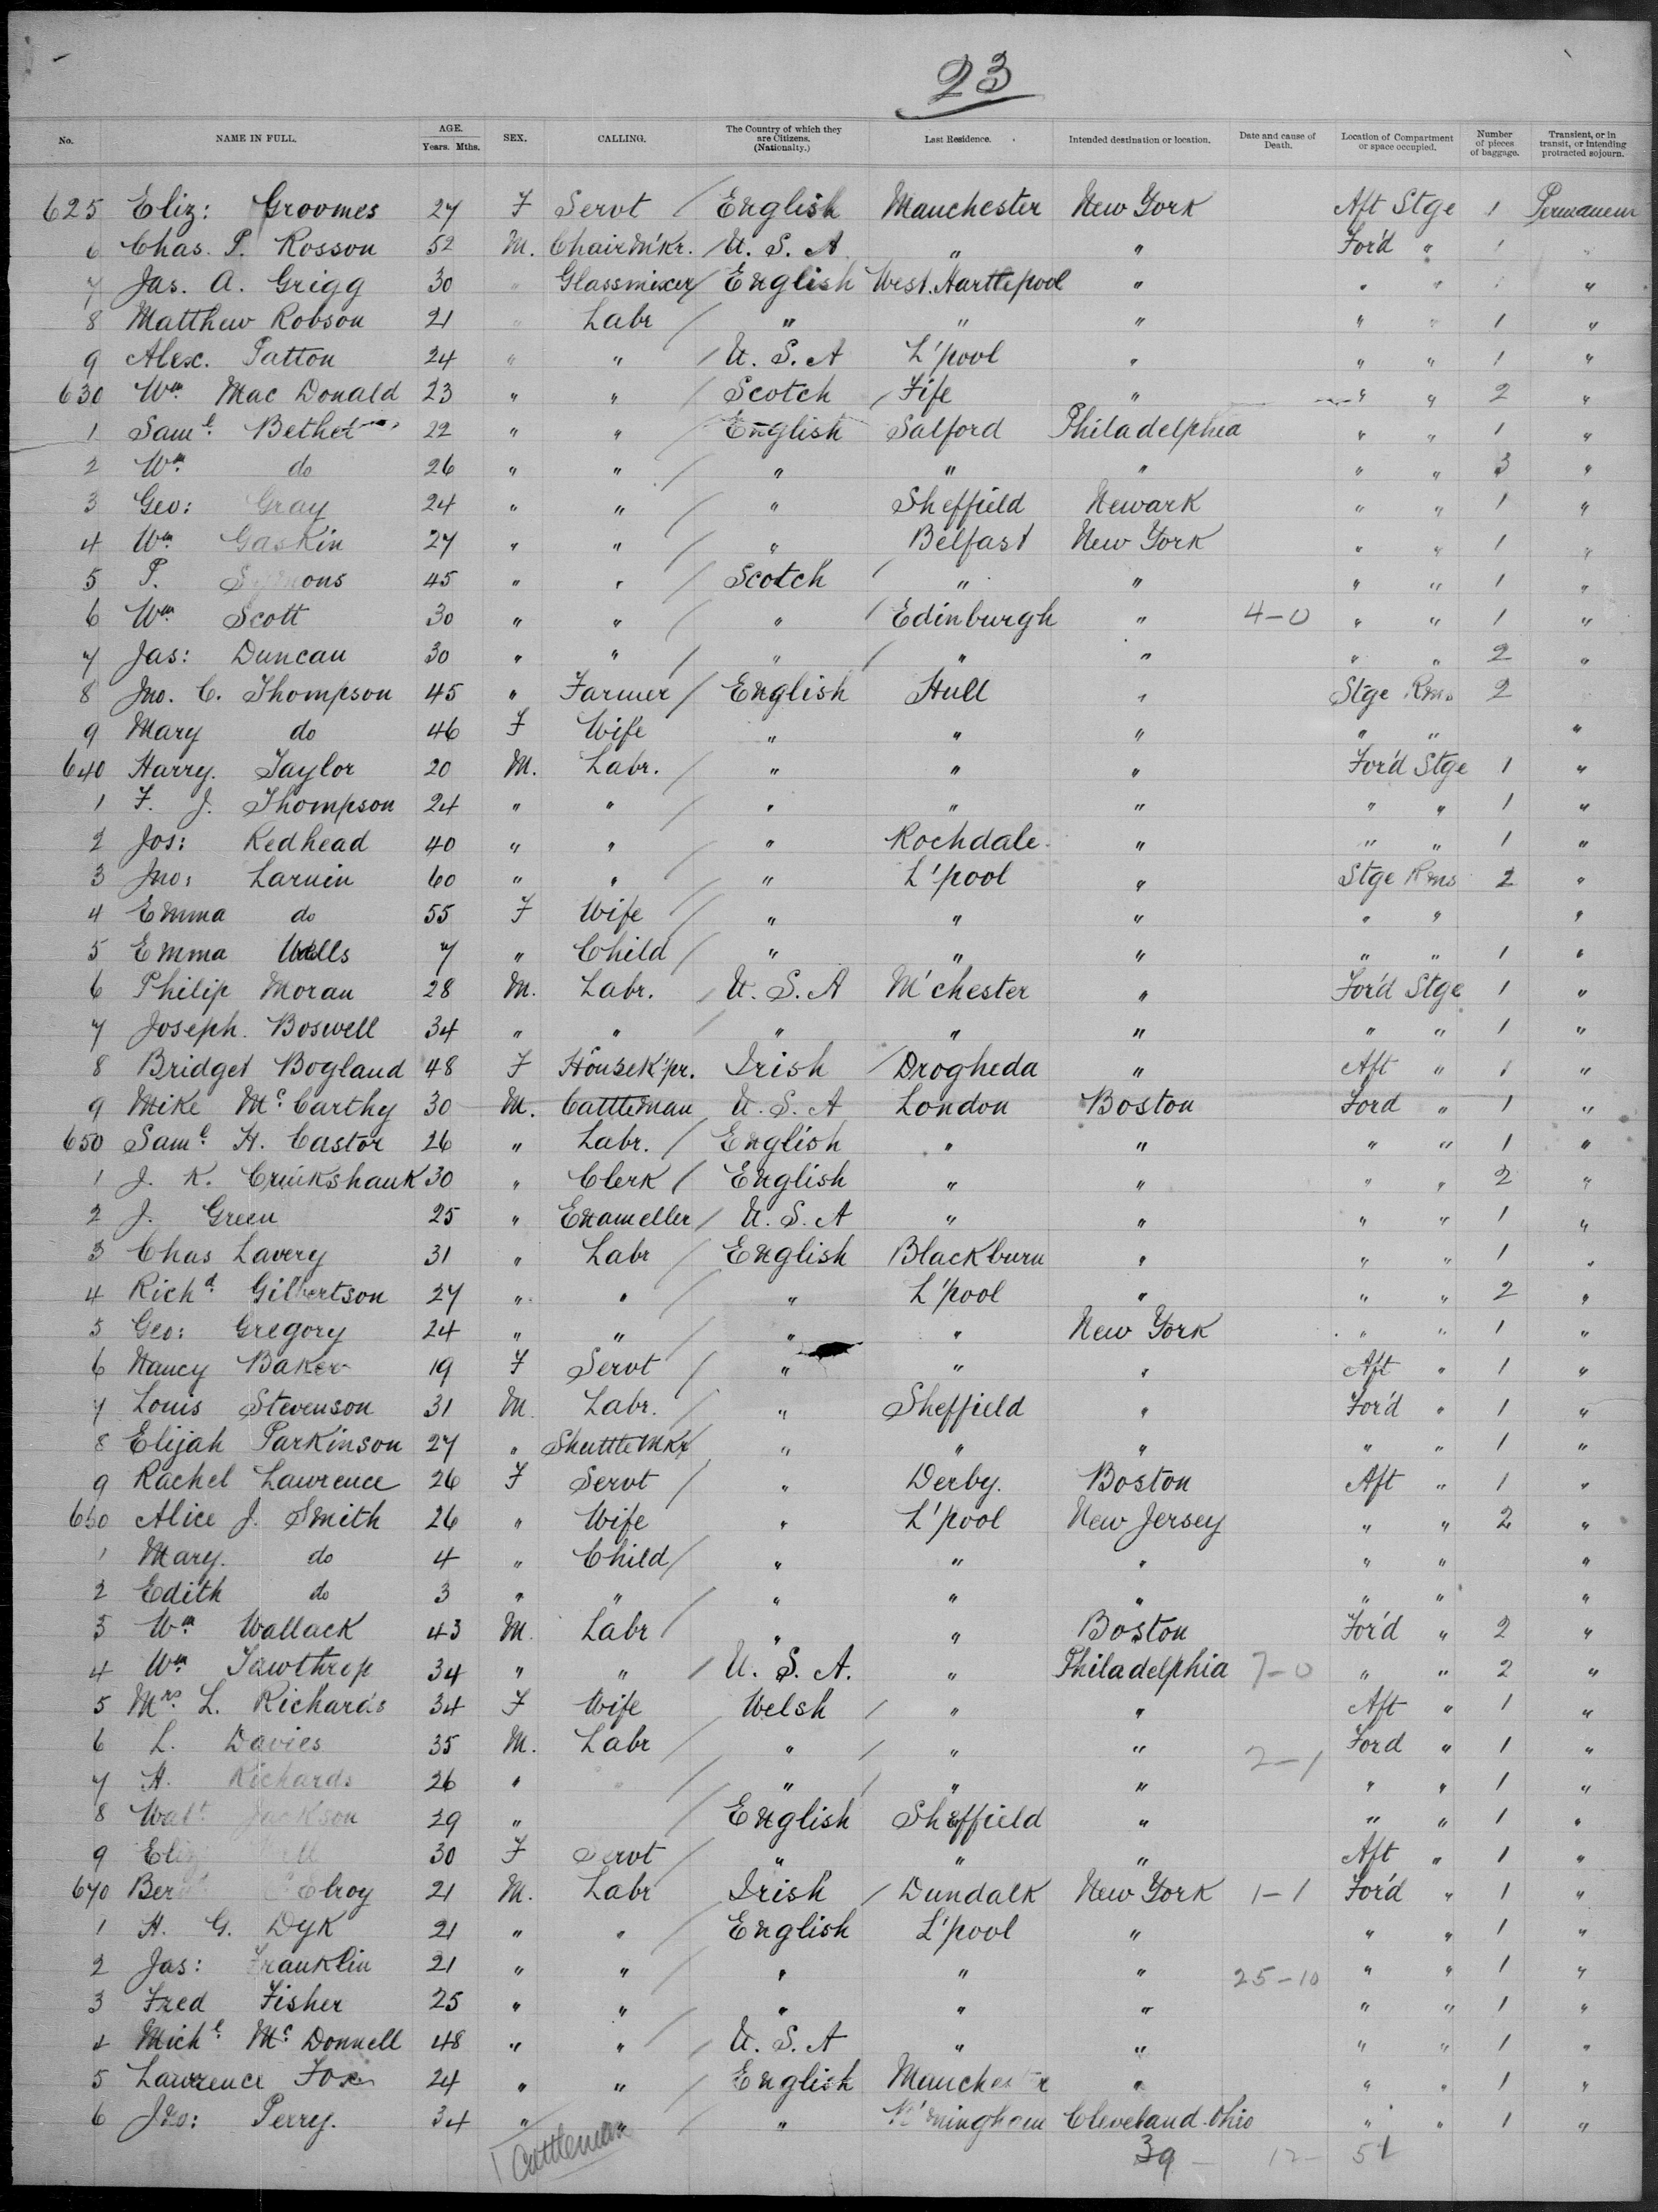 23
No. NAME IN FULL. AGE. Years. Mths. SEX. CALLING. The Country of which they are Citizens. (Nationality.) Last Residence. Intended destination or location. Date and cause of Death. Location of Compartment or space occupied. Number of pieces of baggage. Transient, or in transit, or intending protracted sojourn.
625 Eliz: Groomes 27 F Servt / English Manchester New York Aft Stge 1 Permanent
6 Chas. P. Rosson 52 M. Chair M'kr. / U. S. A " " For'd " 1
7 Jas. A. Grigg 30 " Glassmixer / English West. Hartlepool " " " 1 "
8 Matthew Robson 21 " Labr / " " " " " 1 "
9 Alex. Patton 24 " " / U. S. A L'pool " " " 1 "
630 Wm Mac Donald 23 " " Scotch / Fife " " " 2 "
1 Saml Bethel 22 " " English Salford Philadelphia " " 1 "
2 Wm do 26 " " / " " " " " 3 "
3 Geo: Gray 24 " " / " Sheffield Newark " " 1 "
4 Wm Gaskin 27 " " / " Belfast New York " " 1 "
5 P. Symons 45 " " Scotch / " " " " 1 "
6 Wm Scott 30 " " / " / Edinburgh " 4-0 " " 1 "
7 Jas: Duncan 30 " " / " / " " " " 2 "
8 Jno. C. Thompson 45 " Farmer / English Hull " Stge Rms 2
9 Mary do 46 F Wife " " " " " "
640 Harry. Taylor 20 M. Labr. / " " " For'd Stge 1 "
1 F. J. Thompson 24 " " / " " " " " 1 "
2 Jos: Redhead 40 " " / " Rochdale. " " " 1 "
3 Jno: Larnin 60 " " / " L'pool " Stge Rms 2 "
4 Emma do 55 F Wife / " " " " " "
5 Emma Wells 7 " Child / " " " " " 1 "
6 Philip Moran 28 M. Labr. / U. S. A M'chester " For'd Stge 1 "
7 Joseph. Boswell 34 " " / " " " " " 1 "
8 Bridget Bogland 48 F Housek'pr. Irish / Drogheda " Aft " 1 "
9 Mike Mc Carthy 30 M. Cattleman U. S. A London Boston Ford " 1 "
650 Saml H. Castor 26 " Labr. / English " " " " 1 "
1 J. K. Cruikshank 30 " Clerk / English " " " " 2 "
2 J. Green 25 " Enameller / U. S. A " " " " 1 "
3 Chas Lavery 31 " Labr / English Blackburn " " " 1 "
4 Richd Gilbertson 27 " " / " L'pool " " " 2 "
5 Geo: Gregory 24 " " / " " New York " " 1 "
6 Nancy Baker 19 F Servt / " " " Aft " 1 "
7 Louis Stevenson 31 M. Labr. / " Sheffield " For'd " 1 "
8 Elijah Parkinson 27 " Shuttle Mkr / " " " " " 1 "
9 Rachel Lawrence 26 F Servt / " Derby. Boston Aft " 1 "
660 Alice J. Smith 26 " Wife " L'pool New Jersey " " 2 "
1 Mary. do 4 " Child / " " " " " "
2 Edith do 3 " " / " " " " " "
3 Wm Wallack 43 M. Labr / " " Boston For'd " 2 "
4 Wm Tawthrop 34 " " / U. S. A. " Philadelphia 7-0 " " 2 "
5 Mrs L. Richards 34 F Wife Welsh / " " Aft " 1 "
6 L. Davies 35 M. Labr / " / " " Ford " 1 "
7 H. Richards 26 " " / " / " " 2-1 " " 1 "
8 Walt Jackson 29 " / English Sheffield " " " 1 "
9 Eliz 30 F Servt / " " " Aft " 1 "
670 Elroy 21 M. Labr Irish / Dundalk New York 1-1 For'd " 1 "
1 H. G. Dyk 21 " " / English L'pool " " " 1 "
2 Jas: Franklin 21 " " / " " " 25-10 " " 1 "
3 Fred Fisher 25 " " / " " " " " 1 "
4 Michl Mc Donnell 48 " " / U. S. A " " " " 1 "
5 Lawrence Fox 24 " " / English Manchester " " " 1 "
6 Jno: Perry. 34 " " / " Cleveland. Ohio " " 1 "
1 Cattleman 39 - 12 - 51